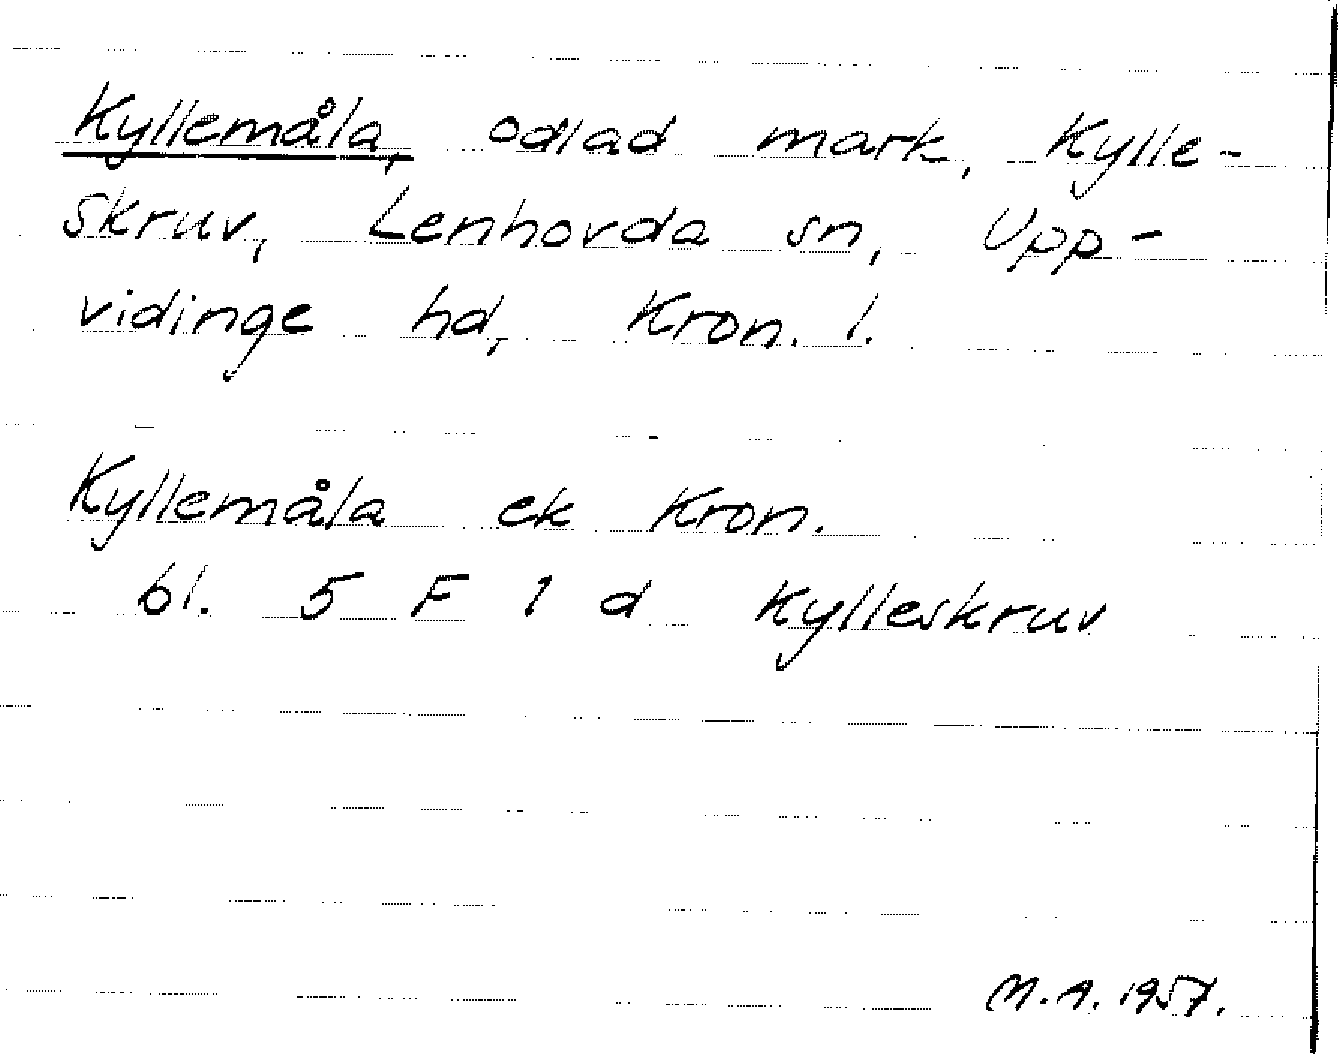 Kyllemåla, odlad mark, Kylle-
skruv, Lenhovda sn, Upp-
vidinge hd, Kron. l.
Kyllemåla ek Kron.
bl. 5 F 1 d Kylleskruv
M.A. 1957.